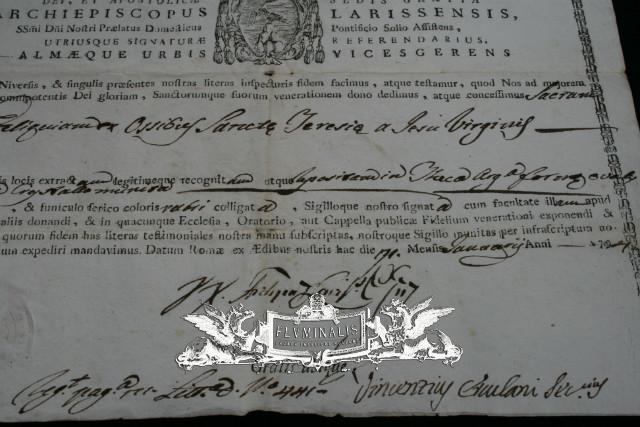 DEI, ET APOSTOLICÆ SEDIS GRATIA
ARCHIEPISCOPUS LARISSENSIS,
SSmi Dñi Nostri Prælatus Domesticus Pontificio Solio Assistens,
UTRIUSQUE SIGNATURÆ REFERENDARIUS,
ALMÆQUE URBIS VICESGERENS
Niversis, & singulis præsentes nostras literas inspecturis fidem facimus, atque testamur, quod Nos ad majorem
omnipotentis Dei gloriam, Sanctorumque suorum venerationem dono dedimus, atque concessimus Sacram
Reliquiam ex Ossibus Sanctæ Teresiæ a Jesu Virginis
is locis extractam legitimeque recognitam atque repositam in Theca
cristallo munita
& funiculo serico coloris rubri colligatâ, Sigilloque nostro signatâ cum facultate illam apud
aliis donandi, & in quacunque Ecclesia, Oratorio, aut Cappella publicæ Fidelium venerationi exponendi &
quorum fidem has literas testimoniales nostra manu subscriptas, nostroque Sigillo munitas per infrascriptum no-
um expediri mandavimus. Datum Romæ ex Ædibus nostris hac die Mensis Januarij Anni
FLVMINALIS
Gratis ubique
Lib. N. 441
Vincentius Secrius